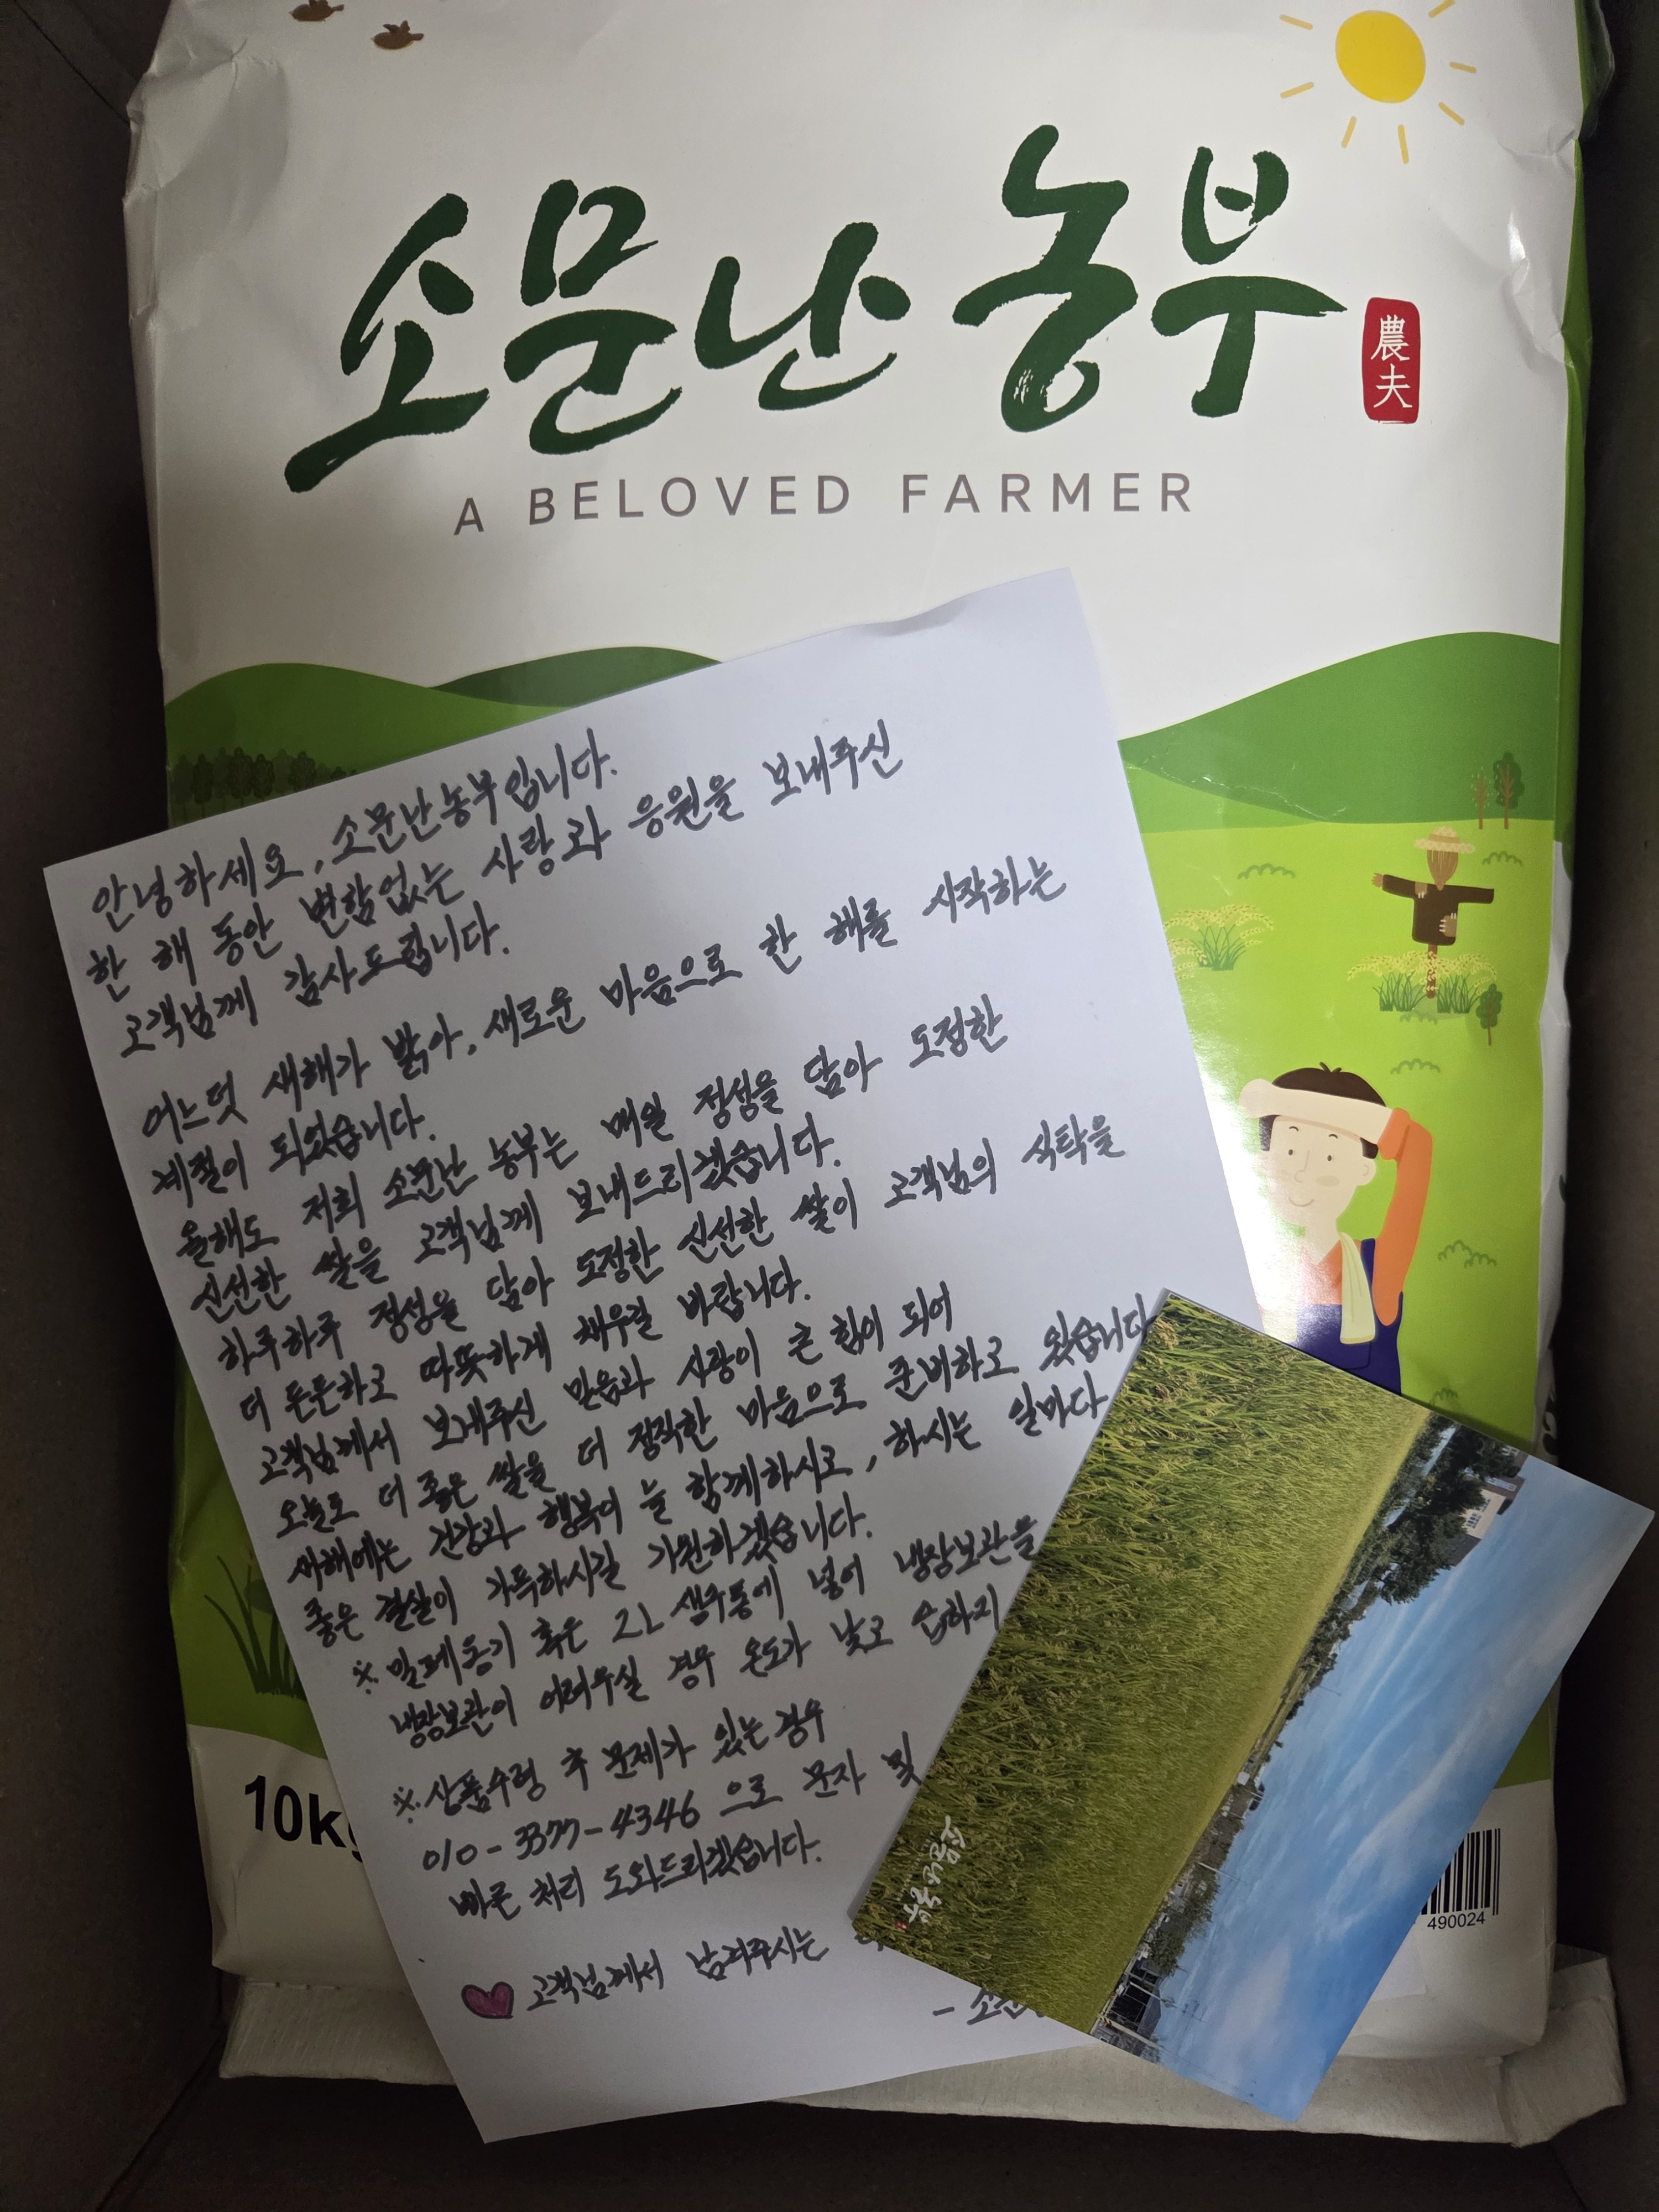 소문난 농부
農夫
A BELOVED FARMER
안녕하세요, 소문난농부입니다.
한 해 동안 변함없는 사랑과 응원을 보내주신
고객님께 감사드립니다.
어느덧 새해가 밝아, 새로운 마음으로 한 해를 시작하는
계절이 되었습니다.
올해도 저희 소문난 농부는 매월 정성을 담아 도정한
신선한 쌀을 고객님께 보내드리겠습니다.
하루하루 정성을 담아 도정한 신선한 쌀이 고객님의 식탁을
더 든든하고 따뜻하게 채우길 바랍니다.
고객님께서 보내주신 믿음과 사랑이 큰 힘이 되어
오늘도 더 좋은 쌀을 더 정직한 마음으로 준비하고 있습니다
새해에는 건강과 행복이 늘 함께하시고, 하시는 일마다
좋은 결실이 가득하시길 기원하겠습니다.
※ 밀폐용기 혹은 2L 생수통에 넣어 냉장보관을
냉장보관이 어려우실 경우 온도가 낮고 습하지
※ 상품수령 후 문제가 있는 경우
010-3377-4346 으로 문자 및
빠른 처리 도와드리겠습니다.
고객님께서 남겨주시는
- 소문
소문난농부
10kg
490024